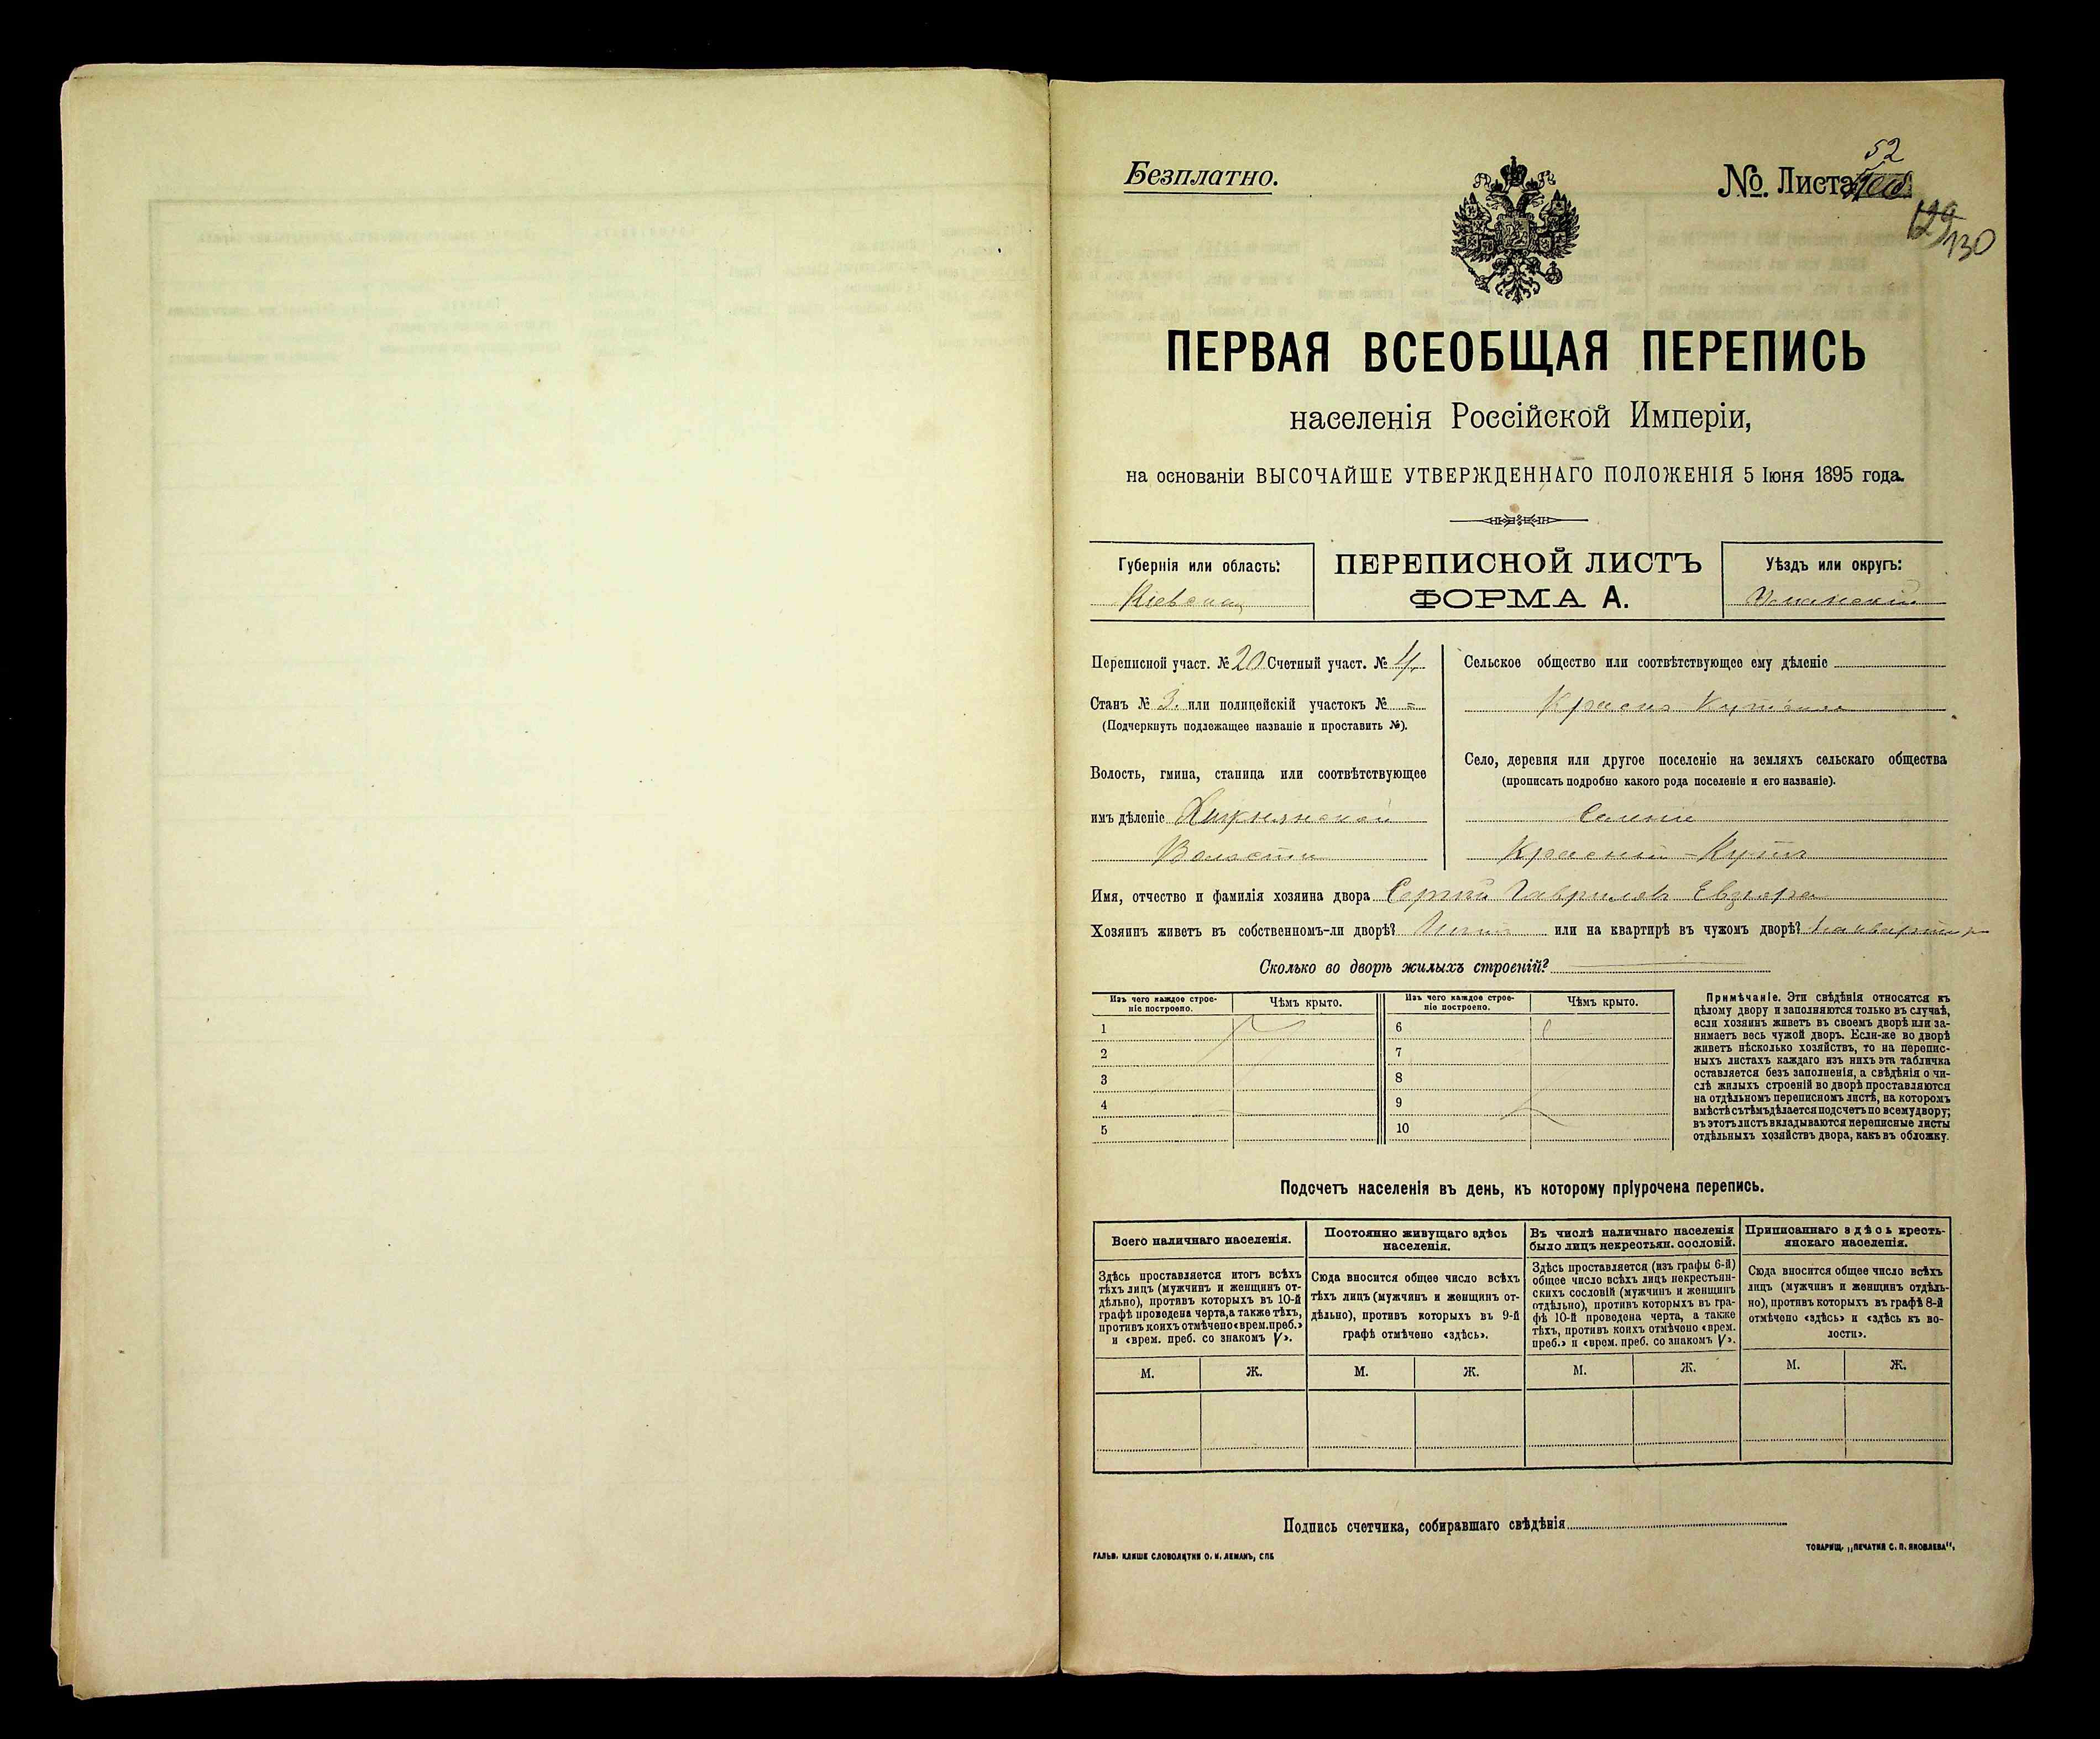 Безплатно.
№. Листа 52
129
130
ПЕРВАЯ ВСЕОБЩАЯ ПЕРЕПИСЬ
населенія Россійской Имперіи,
на основаніи ВЫСОЧАЙШЕ УТВЕРЖДЕННАГО ПОЛОЖЕНІЯ 5 Іюня 1895 года.
Губернія или область:
Кіевская
ПЕРЕПИСНОЙ ЛИСТЪ
ФОРМА А.
Уѣздъ или округъ:
Уманскій
Переписной участ. № 20 Счетный участ. № 4
Станъ № 3. или полицейскій участокъ № =
(Подчеркнуть подлежащее названіе и проставить №).
Волость, гмина, станица или соотвѣтствующее
имъ дѣленіе
Волости
Сельское общество или соотвѣтствующее ему дѣленіе
Село, деревня или другое поселеніе на земляхъ сельскаго общества
(прописать подробно какого рода поселеніе и его названіе).
Красний-Кутъ
Имя, отчество и фамилія хозяина двора Сергій Гавриловъ
Хозяинъ живетъ въ собственномъ-ли дворѣ? или на квартирѣ въ чужомъ дворѣ? на квартирѣ
Сколько во дворѣ жилыхъ строеній?
Изъ чего каждое строе-
ніе построено.
Чѣмъ крыто.
Изъ чего каждое строе-
ніе построено.
Чѣмъ крыто.
1 6
2 7
3 8
4 9
5 10
Примѣчаніе. Эти свѣдѣнія относятся къ
цѣлому двору и заполняются только въ случаѣ,
если хозяинъ живетъ въ своемъ дворѣ или за-
нимаетъ весь чужой дворъ. Если-же во дворѣ
живетъ нѣсколько хозяйствъ, то на перепис-
ныхъ листахъ каждаго изъ нихъ эта табличка
оставляется безъ заполненія, а свѣдѣнія о чи-
слѣ жилыхъ строеній во дворѣ проставляются
на отдѣльномъ переписномъ листѣ, на которомъ
вмѣстѣ съ тѣмъ дѣлается подсчетъ по всему двору;
въ этотъ листъ вкладываются переписные листы
отдѣльныхъ хозяйствъ двора, какъ въ обложку.
Подсчетъ населенія въ день, къ которому пріурочена перепись.
Всего наличнаго населенія.
Здѣсь проставляется итогъ всѣхъ
тѣхъ лицъ (мужчинъ и женщинъ от-
дѣльно), противъ которыхъ въ 10-й
графѣ проведена черта, а также тѣхъ,
противъ коихъ отмѣчено «врем. преб.»
и «врем. преб. со знакомъ V».
М. Ж.
Постоянно живущаго здѣсь
населенія.
Сюда вносится общее число всѣхъ
тѣхъ лицъ (мужчинъ и женщинъ от-
дѣльно), противъ которыхъ въ 9-й
графѣ отмѣчено «здѣсь».
М. Ж.
Въ числѣ наличнаго населенія
было лицъ некрестьян. сословій.
Здѣсь проставляется (изъ графы 6-й)
общее число всѣхъ лицъ некрестьян-
скихъ сословій (мужчинъ и женщинъ
отдѣльно), противъ которыхъ въ гра-
фѣ 10-й проведена черта, а также
тѣхъ, противъ коихъ отмѣчено «врем.
преб.» и «врем. преб. со знакомъ V».
М. Ж.
Приписаннаго здѣсь кресть-
янскаго населенія.
Сюда вносится общее число всѣхъ
лицъ (мужчинъ и женщинъ отдѣль-
но), противъ которыхъ въ графѣ 8-й
отмѣчено «здѣсь» и «здѣсь къ во-
лости».
М. Ж.
Подпись счетчика, собиравшаго свѣдѣнія
ГАЛЬВ. КЛИШЕ СЛОВОЛИТНИ О. И. ЛЕМАНЪ, СПБ
ТОВАРИЩ. „ПЕЧАТНЯ С. П. ЯКОВЛЕВА“.